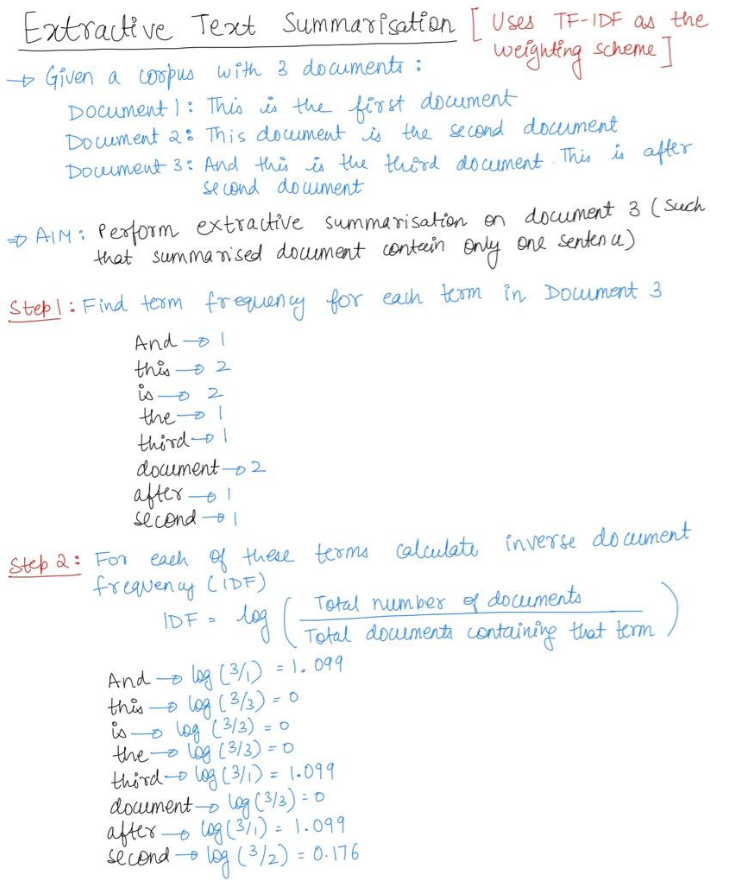 Extractive Text Summarisation [Uses TF-IDF as the
weighting scheme]
→ Given a corpus with 3 documents :
Document 1 : This is the first document
Document 2 : This document is the second document
Document 3 : And this is the third document. This is after
second document
⇒ AIM : Perform extractive summarisation on document 3 (such
that summarised document contain only one sentence)
Step 1 : Find term frequency for each term in Document 3
And → 1
this → 2
is → 2
the → 1
third → 1
document → 2
after → 1
second → 1
Step 2 : For each of these terms calculate inverse document
frequency (IDF)
IDF = log ( Total number of documents / Total documents containing that term )
And → log (3/1) = 1.099
this → log (3/3) = 0
is → log (3/3) = 0
the → log (3/3) = 0
third → log (3/1) = 1.099
document → log (3/3) = 0
after → log (3/1) = 1.099
second → log (3/2) = 0.176